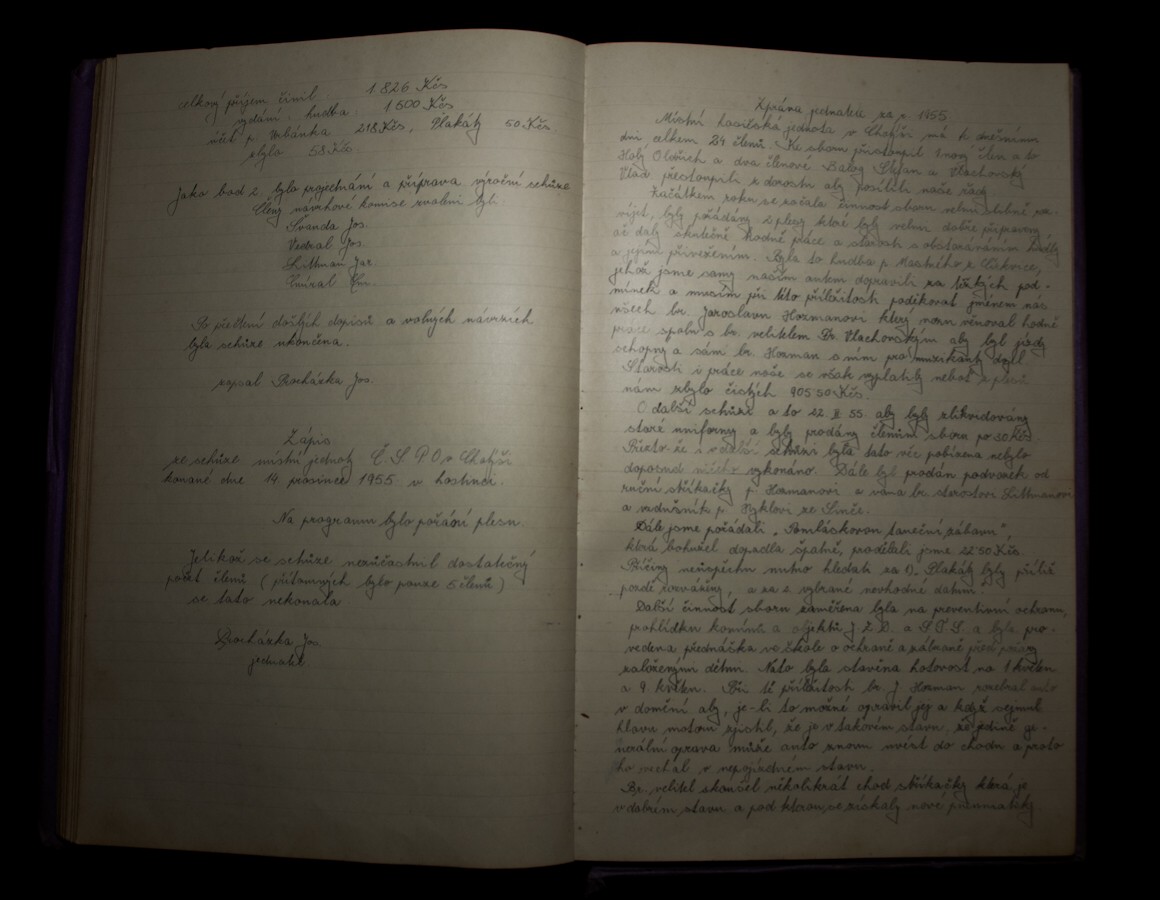 celkový příjem činil 1 826 Kčs
vydání: hudba 1 500 Kčs
účet p. Urbánka 218 Kčs, Plakáty 50 Kčs
zbylo 58 Kčs
Jako bod 2. bylo projednání a příprava výroční schůze
Členy návrhové komise zvoleni byli:
Švanda Jos.
Vedral Jos.
Littman Jar.
Po přečtení došlých dopisů a volných návrzích
byla schůze ukončena.
zapsal Procházka Jos.
Zápis
ze schůze místní jednoty Č.S.P.O v Chotýši
konané dne 14 prosince 1955 v hostinci.
Na programu bylo pořádání plesu.
Jelikož se schůze nezúčastnil dostatečný
počet členů (přítomných bylo pouze 5 členů)
se tato nekonala
Procházka Jos.
jednatel
Zpráva jednatele za r. 1955
Místní hasičská jednota v Chotýši má k dnešnímu
dni celkem 24 členů. Ke sboru přistoupil 1 nový člen a to
Holý Oldřich a dva členové Balog Štefan a Vlachovský
Vlad. přestoupili z dorostu aby posílili naše řady
Začátkem roku se začala činnost sboru velmi slibně roz-
víjet, byly pořádány 2 plesy které byly velmi dobře připraveny
ač daly skutečně hodně práce a starosti s obstaráváním hudby
a jejím přivežením. Byla to hudba p. Mastného z
jehož jsme samy našim autem dopravili za těžkých pod-
mínek a musím při této příležitosti poděkovat jménem nás
všech br. Jaroslavu Hozmanovi který tomu věnoval hodně
práce spolu s br. velitelem Br. Vlachovským aby byl jízdy
schopný a sám br. Hozman s ním pro muzikanty dojel
Starosti i práce naše se však vyplatily neboť z plesů
nám zbylo čistých 905 50 Kčs.
O další schůzi a to 22. II 55 aby byly zlikvidovány
staré uniformy a byly prodány členům sboru po 30 Kčs.
Přesto že i v další schůzi byla tato věc pobízena nebylo
doposud ničeho vykonáno. Dále byl prodán podvozek od
ruční stříkačky p. Hozmanovi a vana br. starostovi Littmanovi
a vzdušník p. Cyklovi ze Linče.
Dále jsme pořádali „Pomláskovou taneční zábavu",
která bohužel dopadla špatně, prodělali jsme 22 50 Kčs.
Příčiny neúspěchu nutno hledati za 1). Plakáty byly příliš
pozdě rozvážěny, a za 2 vybrané nevhodné datum.
Další činnost sboru zaměřena byla na preventivní ochranu,
prohlídku komínů a objektů J.Z.D. a S.T.S. a byla pro-
vedena přednáška ve škole o ochraně a zábraně před požáry
založenými dětmi. Nato byla stavěna hotovost na 1 květen
a 9. květen. Při té příležitosti br. J. Hozman rozebral auto
v domění aby, je-li to možné opravil jej a když sejmul
hlavu motoru zjistil, že je v takovém stavu, že jedině ge-
nerální oprava může auto znovu uvést do chodu a proto
ho nechal v nepojízdném stavu.
Br. velitel zkoušel několikrát chod stříkačky která je
v dobrém stavu a pod kterou se získaly nové pneumatiky